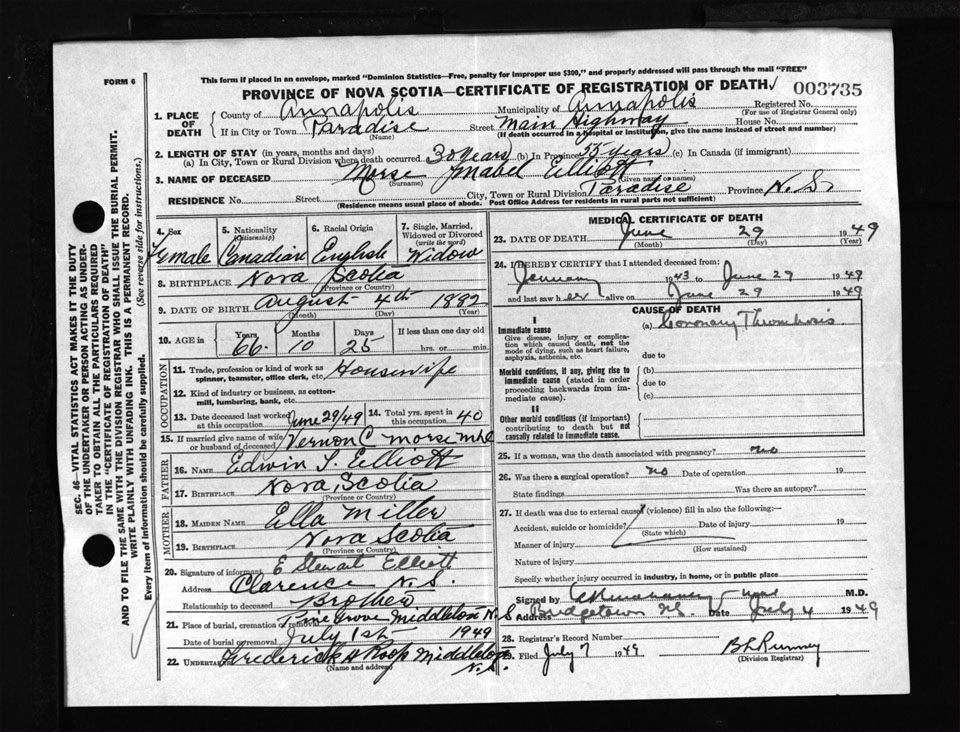 FORM 6
This form if placed in an envelope, marked "Dominion Statistics—Free, penalty for improper use $300," and properly addressed will pass through the mail "FREE"
PROVINCE OF NOVA SCOTIA—CERTIFICATE OF REGISTRATION OF DEATH
003735
1. PLACE OF DEATH
County of Annapolis Municipality of Annapolis Registered No.
(For use of Registrar General only)
If in City or Town Paradise Street Main Highway House No.
(Name) (If death occurred in a hospital or institution, give the name instead of street and number)
2. LENGTH OF STAY (in years, months and days)
(a) In City, Town or Rural Division where death occurred 30 years (b) In Province 55 years (c) In Canada (if immigrant)
3. NAME OF DECEASED Morse Mabel Elliott
(Surname) (Given name or names)
RESIDENCE No. Street City, Town or Rural Division Paradise Province N.S.
(Residence means usual place of abode. Post Office Address for residents in rural parts not sufficient)
4. Sex Female
5. Nationality (Citizenship) Canadian
6. Racial Origin English
7. Single, Married, Widowed or Divorced (write the word) Widow
8. BIRTHPLACE Nova Scotia
(Province or Country)
9. DATE OF BIRTH August 4th 1882
(Month) (Day) (Year)
10. AGE in Years 66 Months 10 Days 25 If less than one day old
hrs. or min.
OCCUPATION
11. Trade, profession or kind of work as spinner, teamster, office clerk, etc. Housewife
12. Kind of industry or business, as cotton-mill, lumbering, bank, etc.
13. Date deceased last worked at this occupation June 29/49
14. Total yrs. spent in this occupation 40
15. If married give name of wife or husband of deceased Vernon C Morse
FATHER
16. NAME Edwin S. Elliott
17. BIRTHPLACE Nova Scotia
(Province or Country)
MOTHER
18. MAIDEN NAME Ella Miller
19. BIRTHPLACE Nova Scotia
(Province or Country)
20. Signature of informant E Stewart Elliott
Address Clarence N.S.
Relationship to deceased Brother
21. Place of burial, cremation or removal Pine Grove Middleton N.S
Date of burial or removal July 1st 1949
22. UNDERTAKER Frederick H Roop Middleton N.S.
(Name and address)
MEDICAL CERTIFICATE OF DEATH
23. DATE OF DEATH June 29 1949
(Month) (Day) (Year)
24. I HEREBY CERTIFY that I attended deceased from:
January 1943 to June 29 1949
and last saw her alive on June 29 1949
CAUSE OF DEATH
I
Immediate cause
Give disease, injury or complication which caused death, not the mode of dying, such as heart failure, asphyxia, asthenia, etc.
(a) Coronary Thrombosis
due to
Morbid conditions, if any, giving rise to immediate cause (stated in order proceeding backwards from immediate cause).
(b)
due to
(c)
II
Other morbid conditions (if important) contributing to death but not causally related to immediate cause.
25. If a woman, was the death associated with pregnancy? no
26. Was there a surgical operation? no Date of operation 19
State findings Was there an autopsy?
27. If death was due to external causes (violence) fill in also the following:—
Accident, suicide or homicide? Date of injury 19
(State which)
Manner of injury
(How sustained)
Nature of injury
Specify whether injury occurred in industry, in home, or in public place
Signed by M.D.
Bridgetown N.S. Date July 4 1949
28. Registrar's Record Number
29. Filed July 7 1949
(Division Registrar)
SEC. 46—VITAL STATISTICS ACT MAKES IT THE DUTY
OF THE UNDERTAKER OR PERSON ACTING AS UNDER-
TAKER TO OBTAIN ALL THE PARTICULARS REQUIRED
IN THE "CERTIFICATE OF REGISTRATION OF DEATH"
AND TO FILE THE SAME WITH THE DIVISION REGISTRAR WHO SHALL ISSUE THE BURIAL PERMIT.
WRITE PLAINLY WITH UNFADING INK. THIS IS A PERMANENT RECORD.
Every item of information should be carefully supplied. (See reverse side for instructions.)